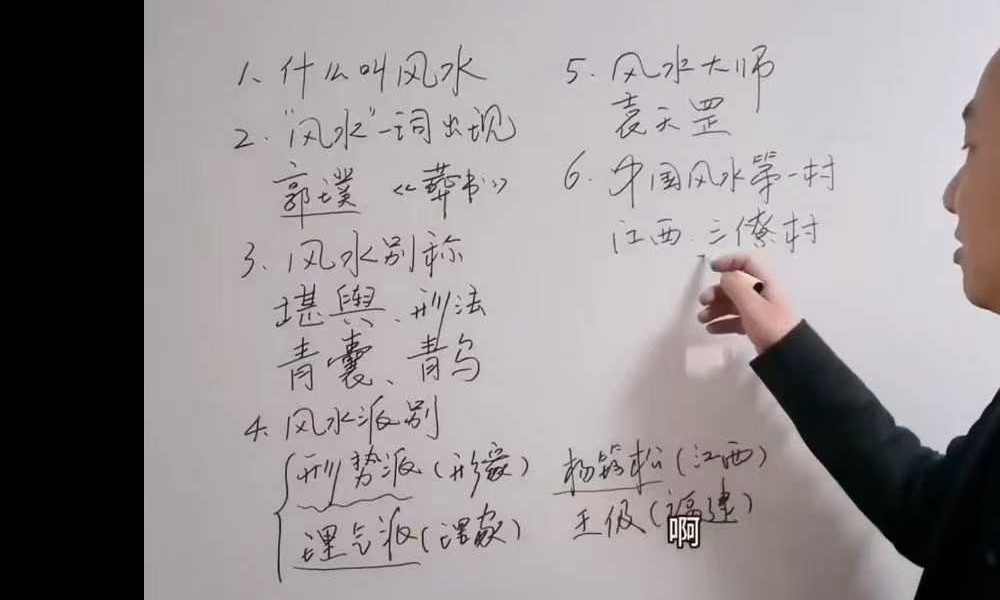 1、什么叫风水
2.“风水”一词出现
郭璞《葬书》
3、风水别称
堪舆、形法
青囊、青乌
4、风水派别
形势派(形家) 杨筠松(江西)
理气派(理家) 王伋(福建)
5.风水大师
袁天罡
6.中国风水第一村
江西.三僚村
啊